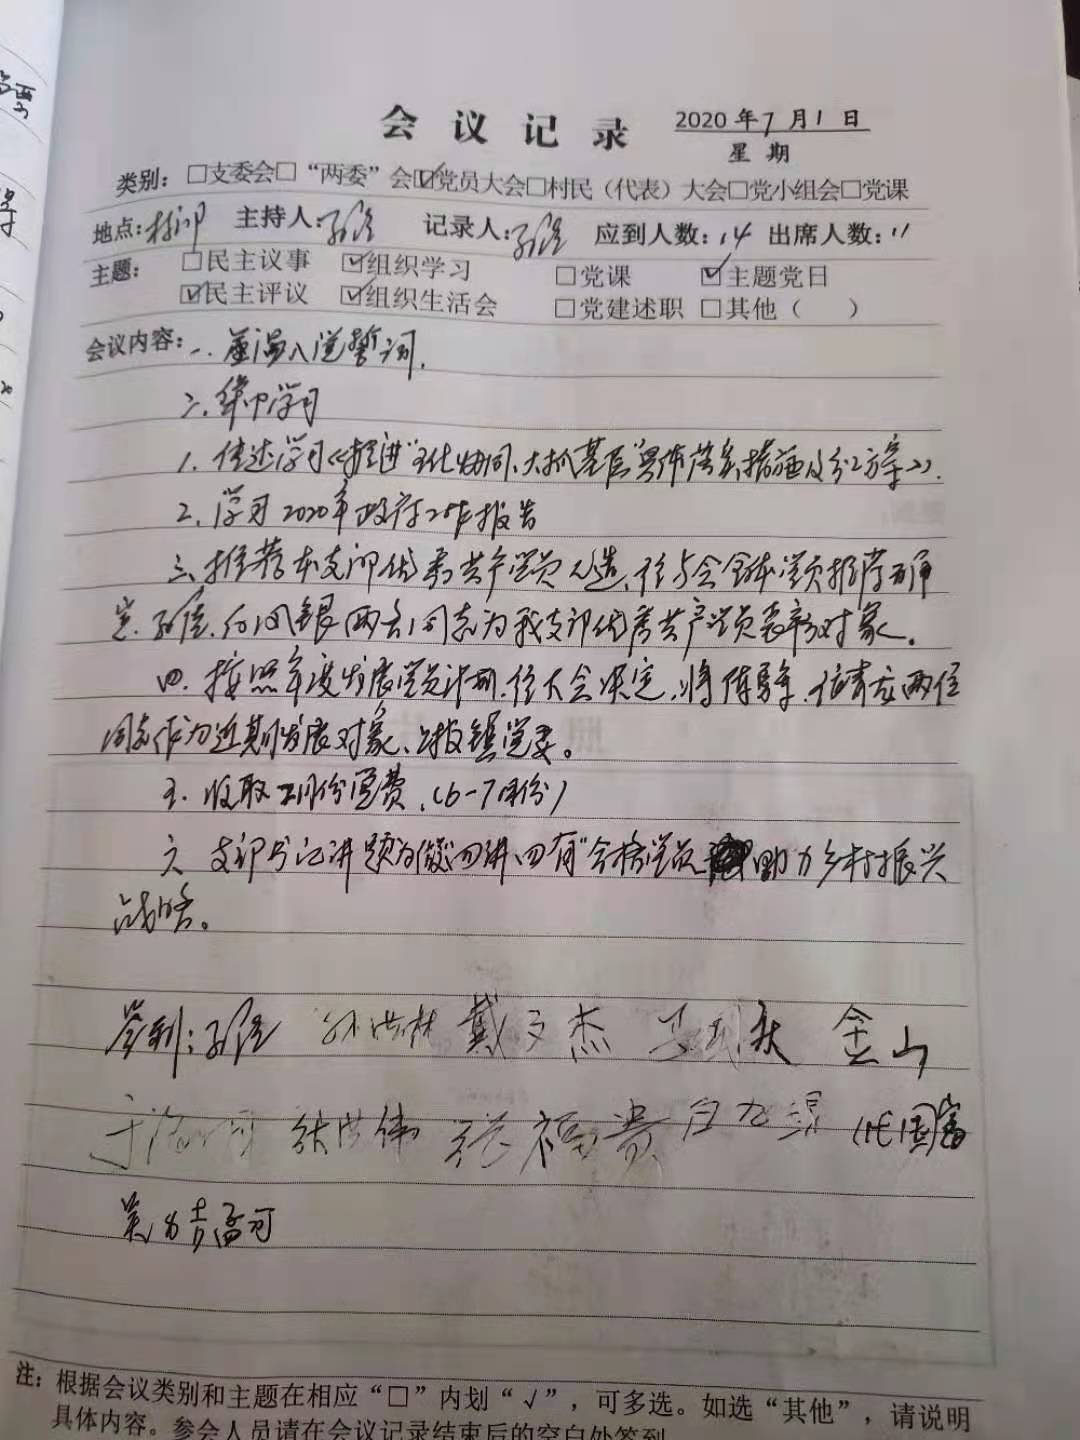 会议记录 2020年7月1日
星期
类别：□支委会□“两委”会☑党员大会□村民（代表）大会□党小组会□党课
地点：村部 主持人： 记录人： 应到人数：14 出席人数：11
主题：□民主议事 ☑组织学习 □党课 ☑主题党日
☑民主评议 ☑组织生活会 □党建述职 □其他（ ）
会议内容：一.重温入党誓词.
二.集中学习
1.传达学习《推进“三化协同、大抓基层”具体落实措施及分工方案》.
2.学习2020年政府工作报告
三、推荐本支部优秀共产党员人选，经与会全体党员推荐确
定，两名同志为我支部优秀共产党员表彰对象。
四.按照年度发展党员计划，经大会决定，将两位
同志作为近期发展对象、上报镇党委。
五.收取二月份党费，（6-7月份）
六、支部书记讲题为做“四讲四有”合格党员 助力乡村振兴
战略。
签到： 孙洪林 戴文杰 金山
张洪伟 张福贵 国富
注：根据会议类别和主题在相应“□”内划“√”，可多选。如选“其他”，请说明
具体内容。参会人员请在会议记录结束后的空白处签到